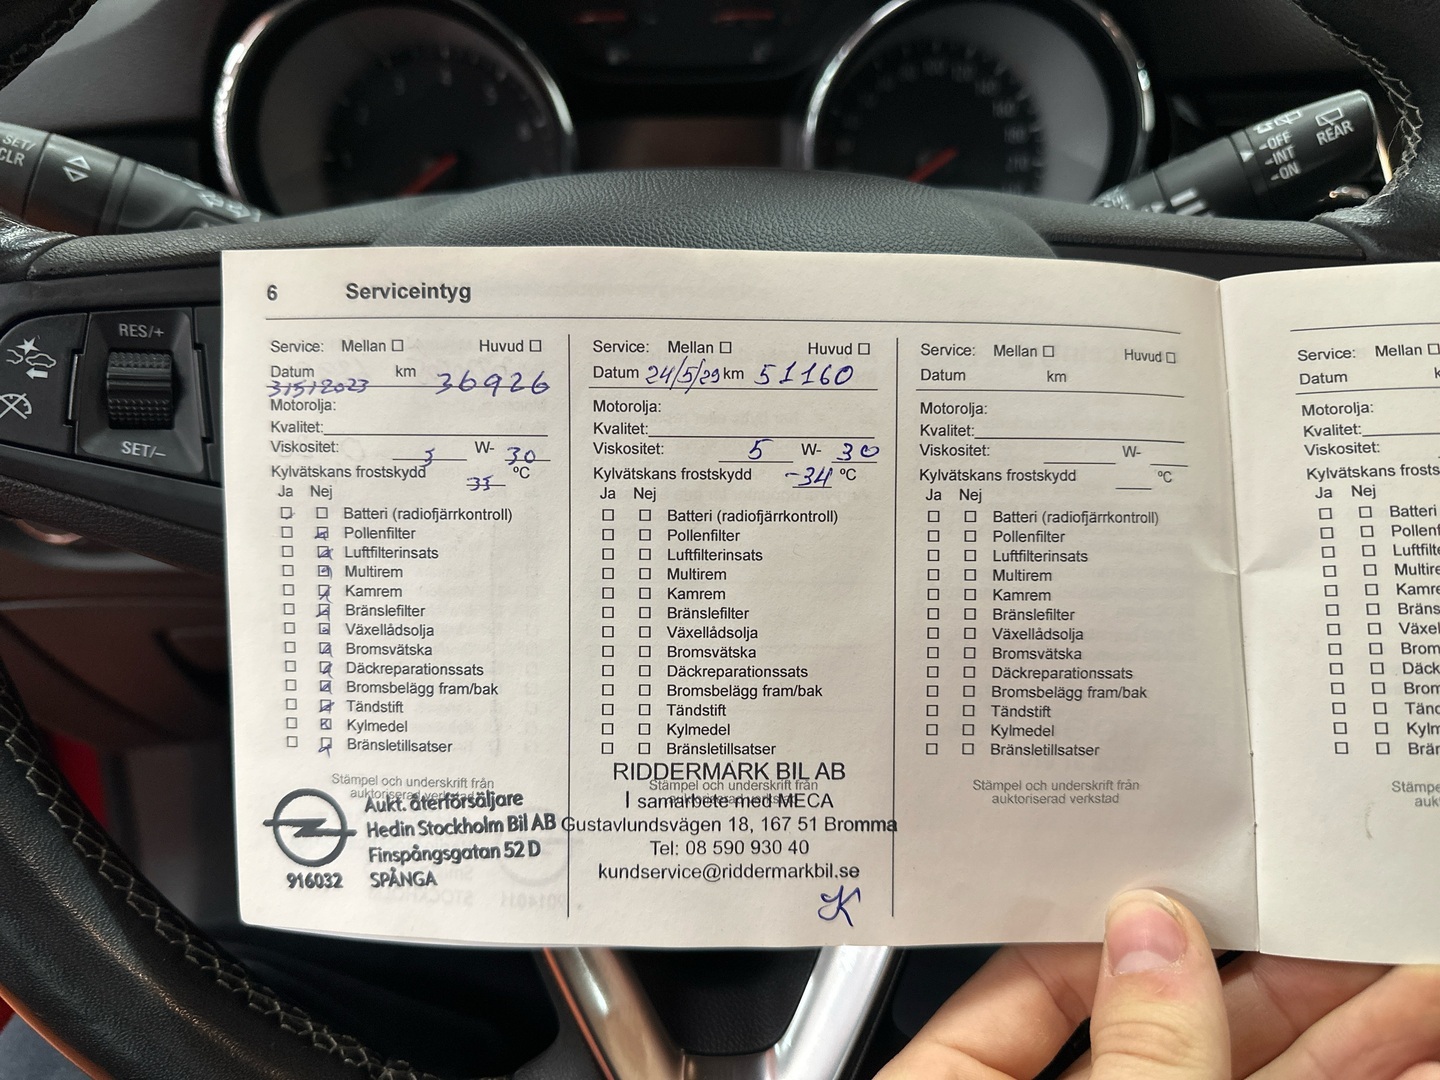 SET/
CLR
OFF
INT
ON
REAR
RES/+
SET/–
6 Serviceintyg
Service: Mellan ☐ Huvud ☐
Datum 31512023 km 36926
Motorolja:
Kvalitet:
Viskositet: 5 W- 30
Kylvätskans frostskydd 35 °C
Ja Nej
Batteri (radiofjärrkontroll)
Pollenfilter
Luftfilterinsats
Multirem
Kamrem
Bränslefilter
Växellådsolja
Bromsvätska
Däckreparationssats
Bromsbelägg fram/bak
Tändstift
Kylmedel
Bränsletillsatser
Stämpel och underskrift från
auktoriserad verkstad
Aukt. återförsäljare
Hedin Stockholm Bil AB
Finspångsgatan 52 D
916032 SPÅNGA
Service: Mellan ☐ Huvud ☐
Datum 24/5/ km 51160
Motorolja:
Kvalitet:
Viskositet: 5 W- 30
Kylvätskans frostskydd -34 °C
Ja Nej
Batteri (radiofjärrkontroll)
Pollenfilter
Luftfilterinsats
Multirem
Kamrem
Bränslefilter
Växellådsolja
Bromsvätska
Däckreparationssats
Bromsbelägg fram/bak
Tändstift
Kylmedel
Bränsletillsatser
RIDDERMARK BIL AB
Stämpel och underskrift från
I samarbete med MECA
Gustavlundsvägen 18, 167 51 Bromma
Tel: 08 590 930 40
kundservice@riddermarkbil.se
K
Service: Mellan ☐ Huvud ☐
Datum km
Motorolja:
Kvalitet:
Viskositet: W-
Kylvätskans frostskydd °C
Ja Nej
Batteri (radiofjärrkontroll)
Pollenfilter
Luftfilterinsats
Multirem
Kamrem
Bränslefilter
Växellådsolja
Bromsvätska
Däckreparationssats
Bromsbelägg fram/bak
Tändstift
Kylmedel
Bränsletillsatser
Stämpel och underskrift från
auktoriserad verkstad
Service: Mellan ☐
Datum
Motorolja:
Kvalitet:
Viskositet:
Kylvätskans frosts
Ja Nej
Batteri
Pollenf
Luftfilte
Multire
Kamre
Bräns
Växel
Brom
Däck
Brom
Tänd
Kylm
Brän
Stämpe
auk